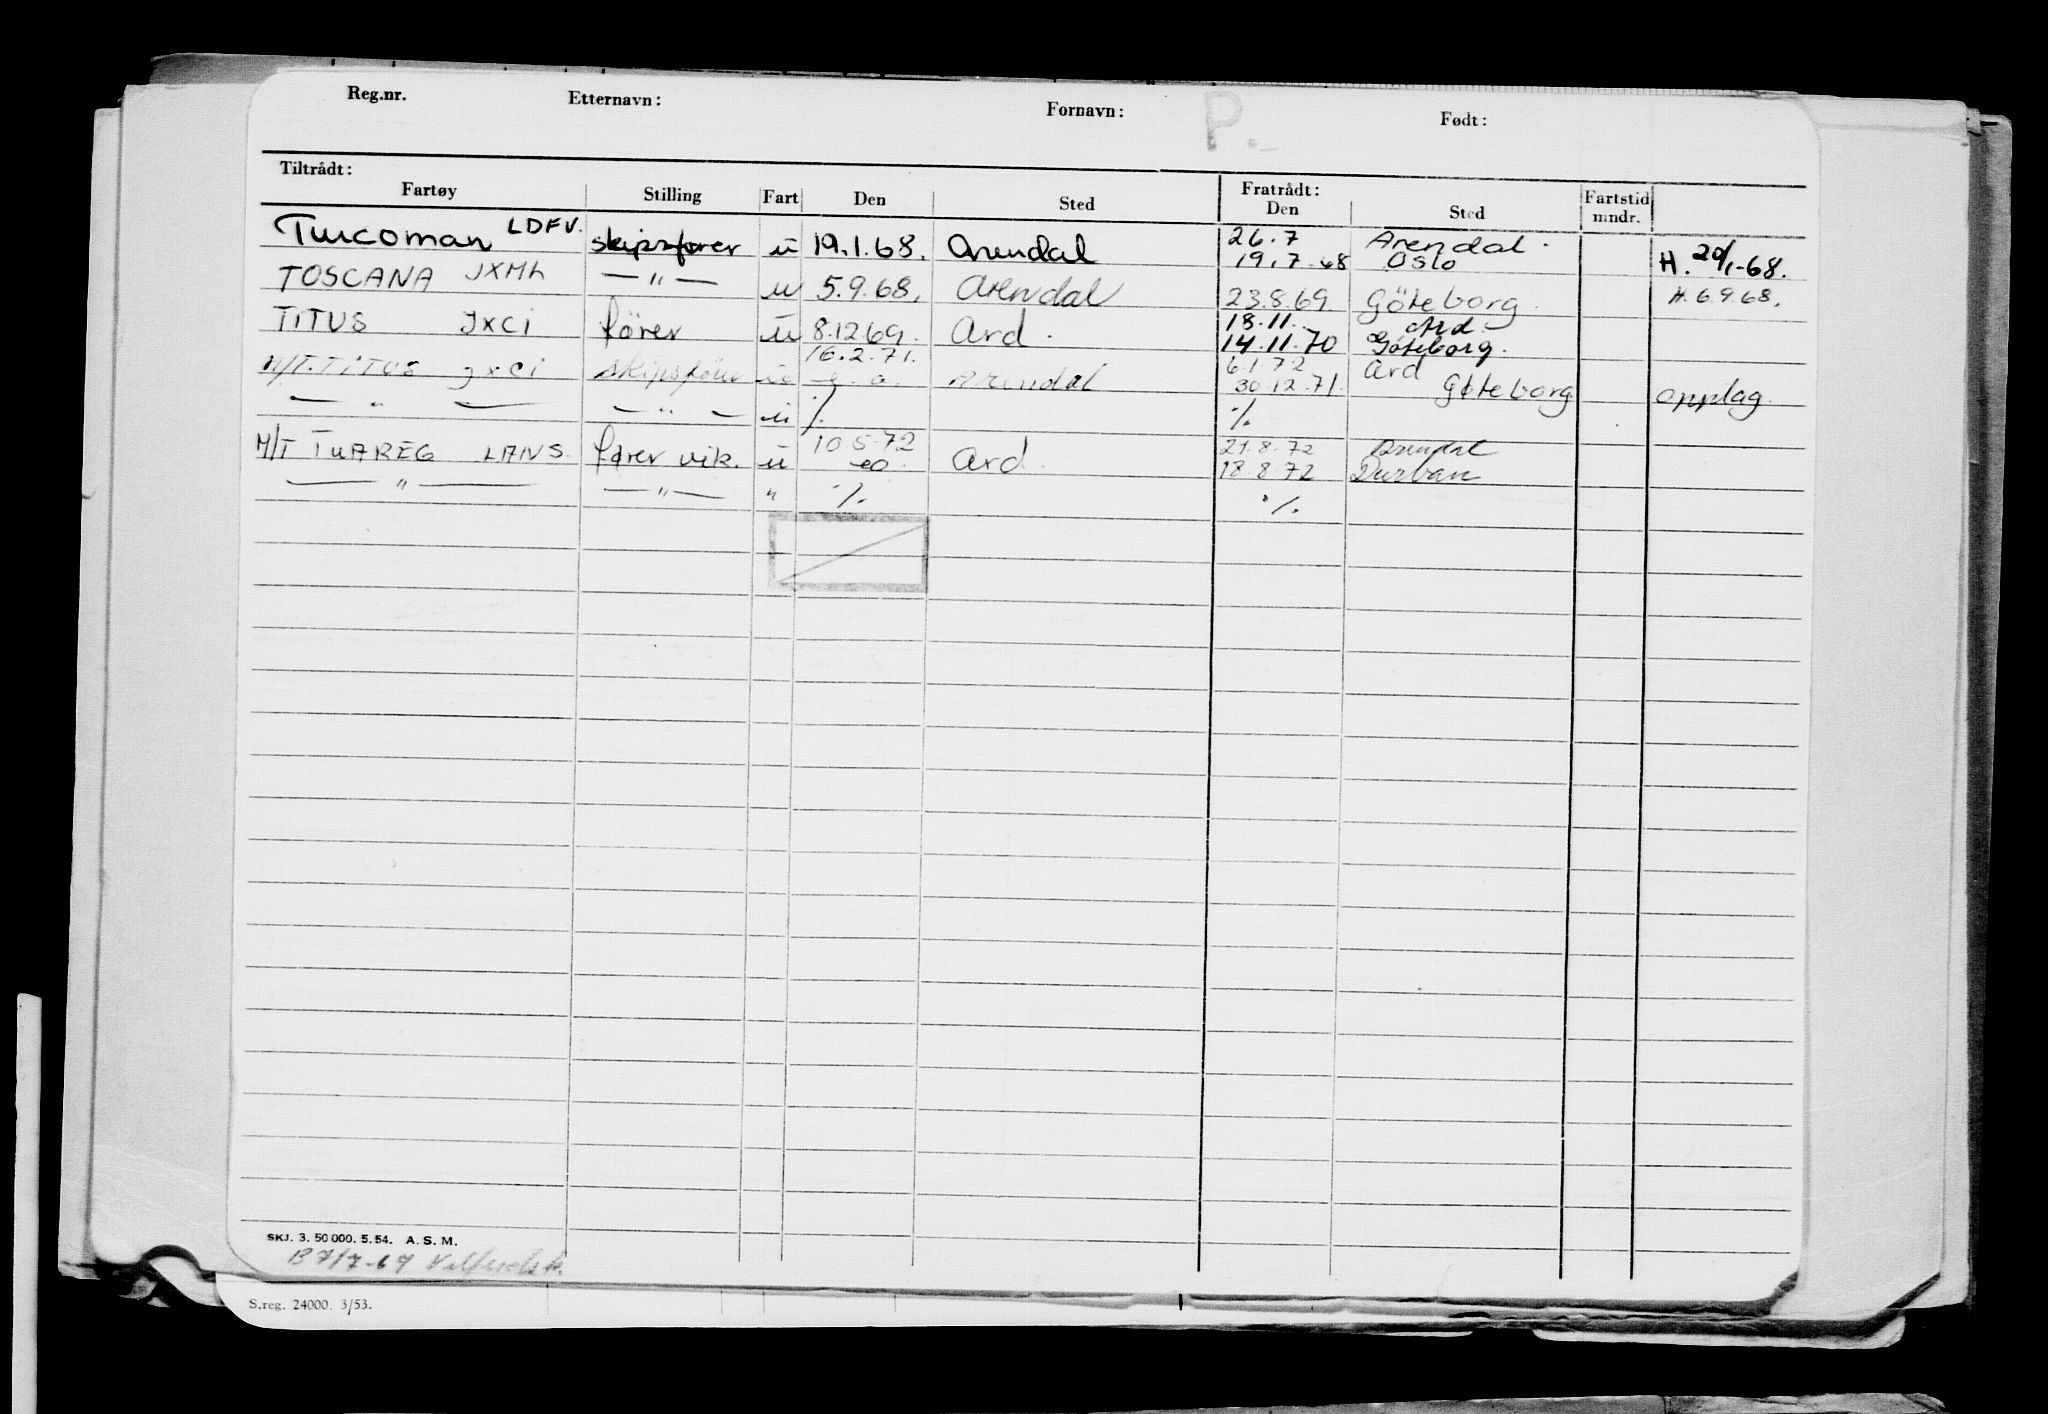 Reg.nr. Etternavn: Fornavn: P. Født:
Tiltrådt: Fratrådt:
Fartøy Stilling Fart Den Sted Den Sted Fartstid mndr.
Turcoman LDFV. skipsfører u 19.1.68. Arendal 26.7 Arendal. H. 20/1-68.
19.7.68 Oslo
TOSCANA JXMh —"— u 5.9.68. Arendal 23.8.69 Göteborg. H. 6.9.68.
TITUS JXCi förer u 8.12 69. Ard. 18.11. Ard.
14.11.70 Göteborg.
M/T. TITUS JXCi skipsförer u 16.2.71. Arendal 6.1.72 Ard
30.12.71. Göteborg opplag.
—"— —"— u ./. ./.
M/T TUAREG LANS. fører vik. u 10 5.72 Ard. 21.8.72 Arendal
eo. 18 8 72 Durban
—"— —"— " ./. ./.
SKJ. 3. 50 000. 5.54. A. S. M.
B 7/7-67
S.reg. 24000. 3/53.